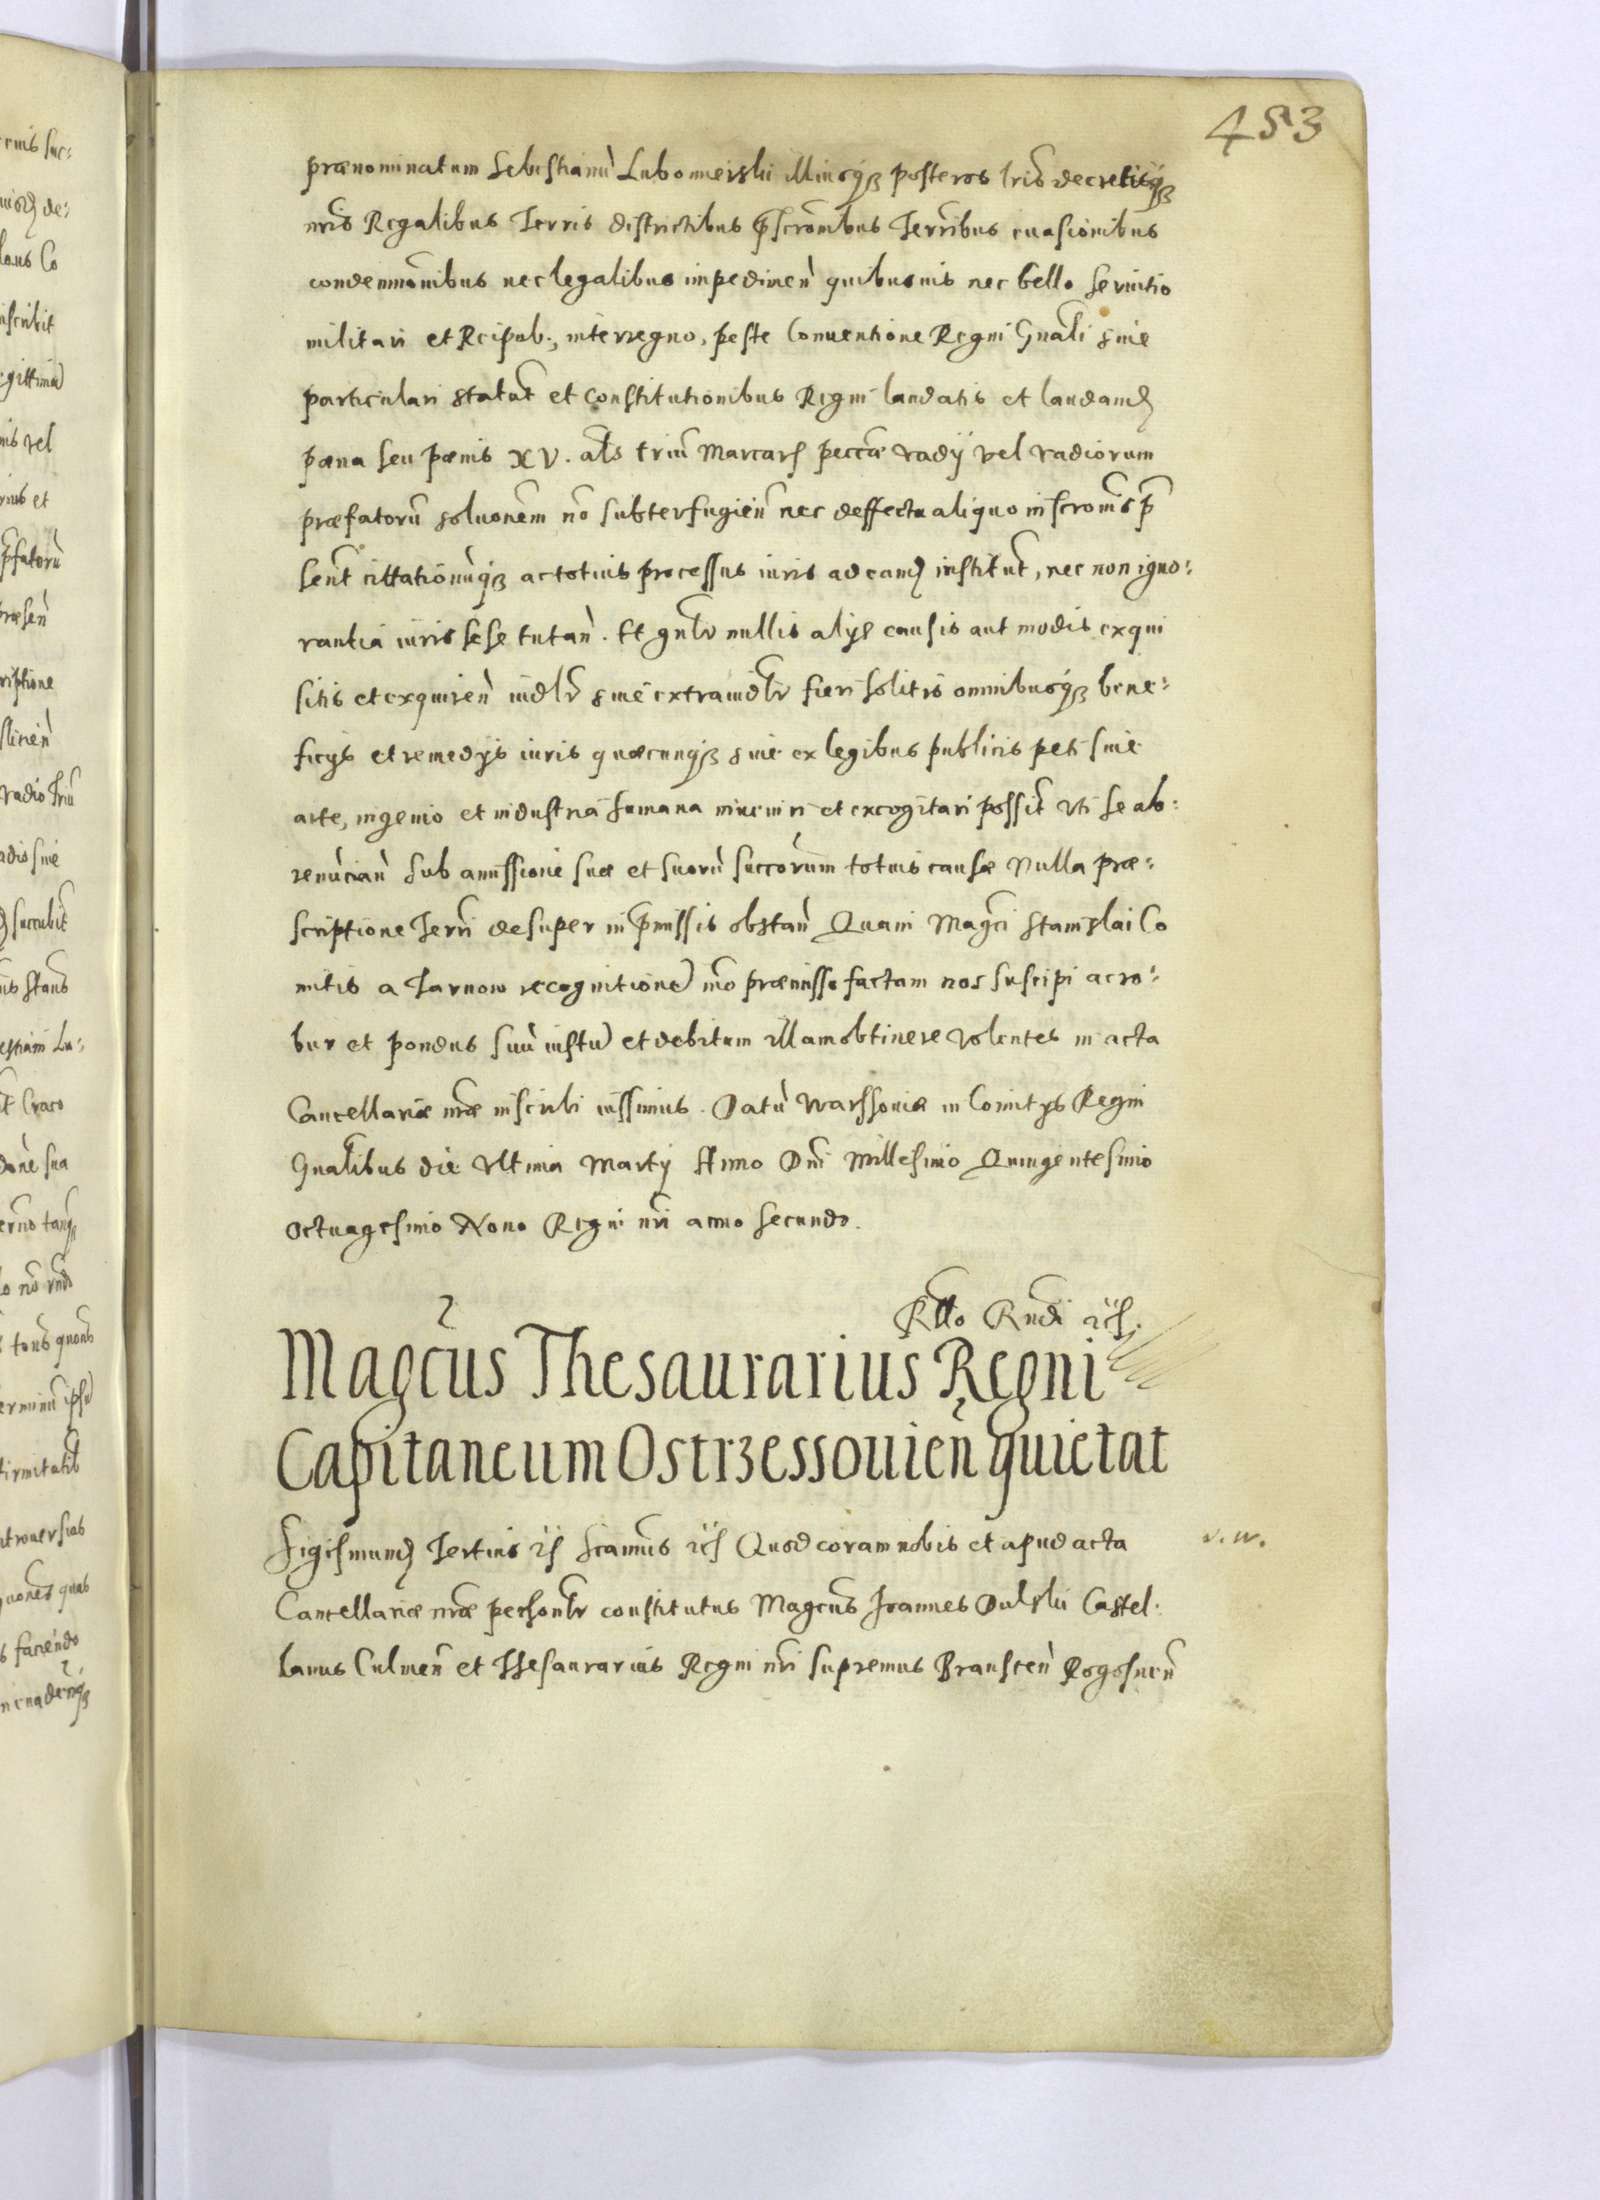 453
prænominatum Sebestianū Lubomeirski illiusqȝ posteros lris decretisqȝ
nris Regalibus Terris districtibus pscronibus Terribus euasionibus
condemnonibus nec legalibus impedimen quibusuis nec bello seruitio
militari et Reipub:, interregno, peste Conuentione Regni Gnali siue
particulari statut et constitutionibus Regni laudatis et laudand
pæna seu pænis XV. als triu Marcar peccæ vadÿ vel vadiorum
præfatorū soluonem no subterfugien nec deffectu aliquo inscronis p
sent cittationūqȝ ac totius processus iuris ad eam institut, nec non igno:
rantia iuris sese tutan. Et gnlr nullis alÿs causis aut modis exqui
sitis et exquiren iudlr siue extraiudlr fieri solitis omnibusqȝ bene:
ficÿs et remedÿs iuris quæcunqȝ siue ex legibus publicis peti siue
arte, ingenio et industria humana inueniri et excogitari possit vti se ab:
renūcian sub amissione suæ et suorū succorum totius causæ Nulla præ:
scriptione Terri desuper in pmissis obstan Quam Magci Stanislai Co
mitis a Tarnow recognitione mo præmisso factam nos suscipi ac ro:
bur et pondus suū iustu et debitum illam obtinere volentes in acta
Cancellariæ nræ inscribi iussimus. Datū Warssouiæ in Comitÿs Regni
Gnalibus die vltima Martÿ Anno Dni Millesimo Quingentesimo
Octuagesimo Nono Regni nri anno secundo.
Rtto Rndi
Magcus Thesaurarius Regni
Capitaneum Ostrzessouien quietat
Sigismund Tertius Scamus Quod coram nobis et apud acta
v. w.
Cancellariæ nræ persontr constitutus Magcus Joannes Dulski Castel:
lanus Culmen et Thesaurarius Regni nri supremus Branscen Rogosnen